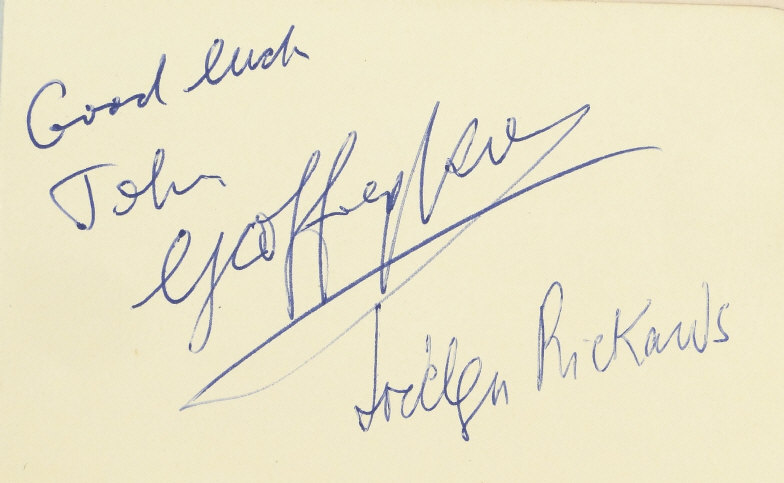 Good luck
John
Geoffrey Keen
Jocelyn Rickards